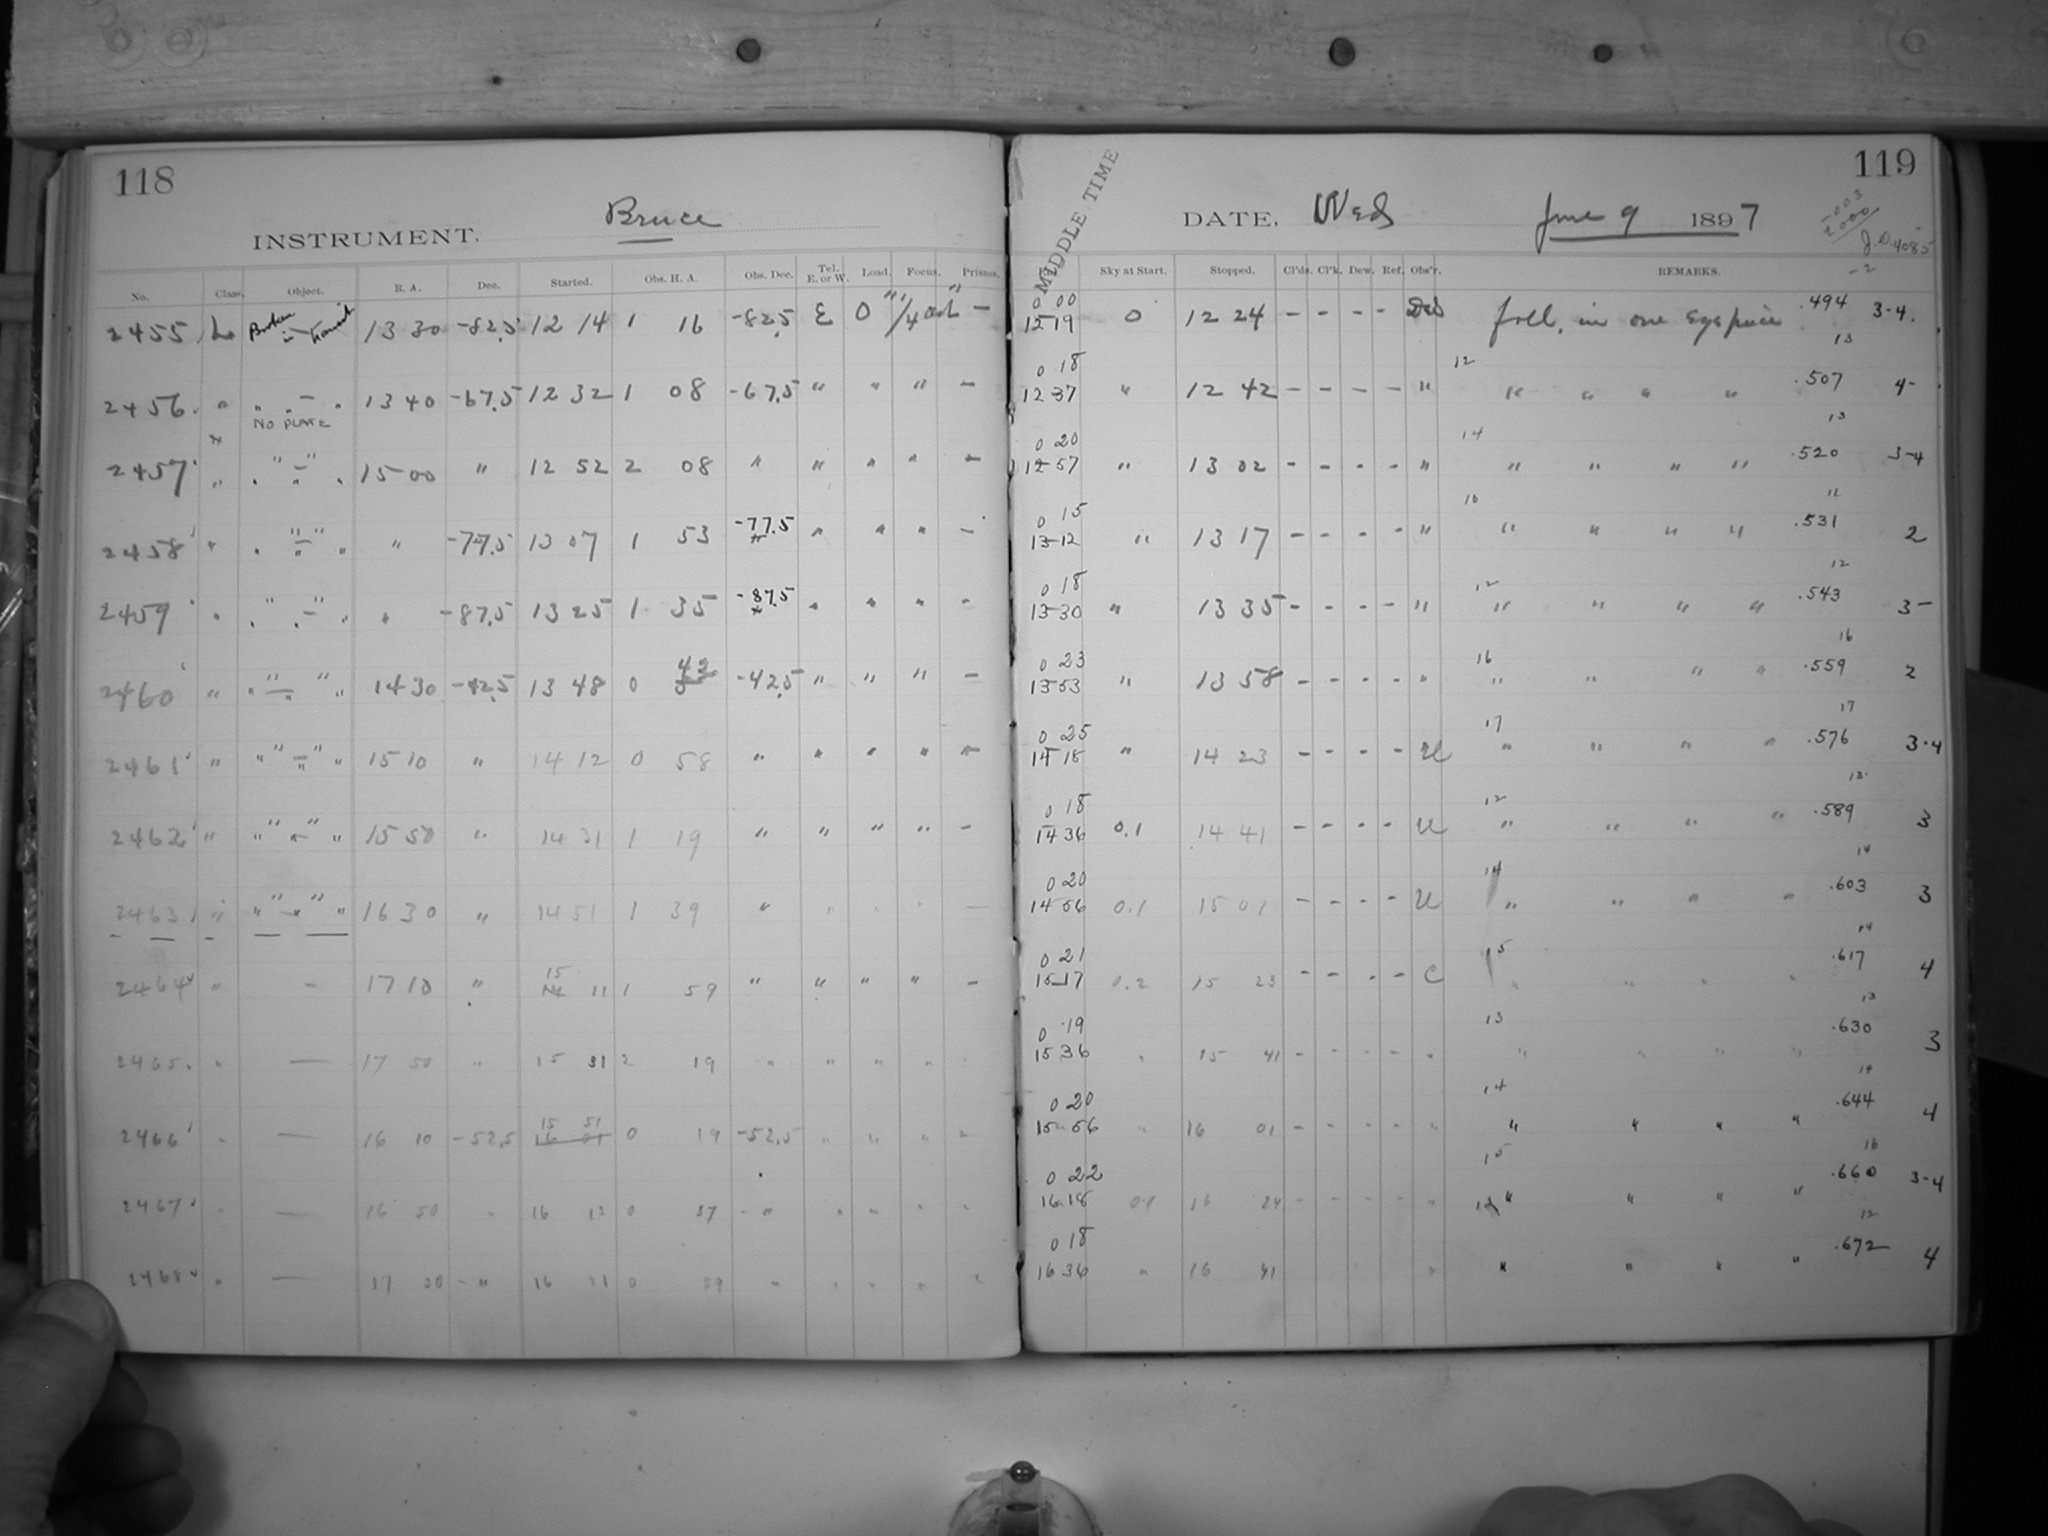 118
INSTRUMENT. Bruce
No. Class. Object. R. A. Dec. Started. Obs. H. A. Obs. Dec. Tel. E. or W. Load. Focus. Prisms.
2455 L Broken in transit 13 30 -82.5 12 14 1 16 -82.5 E 0 " 1/4 " —
2456 " " — " 13 40 -67.5 12 32 1 08 -67.5 " " " —
NO PLATE
2457 " " — " 15 00 " 12 52 2 08 " " " " —
2458 " " — " " -77.5 13 07 1 53 -77.5 " " " —
2459 " " — " " -87.5 13 25 1 35 -87.5 " " " -
2460 " " — " 14 30 -42.5 13 48 0 42 -42.5 " " " —
2461 " " — " 15 10 " 14 12 0 58 " " " " —
2462 " " — " 15 50 " 14 31 1 19 " " " " —
2463 " " — " 16 30 " 14 51 1 39 " " " " —
2464 " — 17 10 " 15 11 1 59 " " " " —
2465 " — 17 50 " 15 31 2 19 " " " "
2466 " — 16 10 -52.5 15 51 0 19 -52.5 " " " -
2467 " — 16 50 " 16 13 0 37 " " " " -
2468 " — 17 30 " 16 31 0 39 " " " "
119
MIDDLE TIME
DATE, Wed June 9 1897
-.003
J.D. 4085
-2
Sky at Start. Stopped. Cl'ds. Cl'k. Dew. Ref. Obs'r. REMARKS.
0 00
12 19 0 12 24 - - - - foll. in one eyepiece .494 3-4.
0 18 12 13
12 37 " 12 42 - - - - " " " " " .507 4-
0 20 14 13
12 57 " 13 02 - - - - " " " " " .520 3-4
0 15 10 11
13 12 " 13 17 - - - - " " " " " .531 2
0 18 12 12
13 30 " 13 35 - - - - " " " " " .543 3-
0 23 16 16
13 53 " 13 58 - - - - " " " " " .559 2
0 25 17 17
14 18 " 14 23 - - - - U " " " " .576 3-4
0 18 12 13
14 36 0.1 14 41 - - - - U " " " " .589 3
0 20 14 14
14 56 0.1 15 01 - - - - U " " " " .603 3
0 21 15 14
15 17 0.2 15 23 - - - - C " " " " .617 4
0 19 13 13
15 36 " 15 41 - - - - " " " " " .630 3
0 20 14 14
15 56 " 16 01 - - - - " " " " " .644 4
0 22 15 16
16 18 0.1 16 24 - - - - " " " " " .660 3-4
0 18 12 12
16 36 " 16 41 " " " " " .672 4